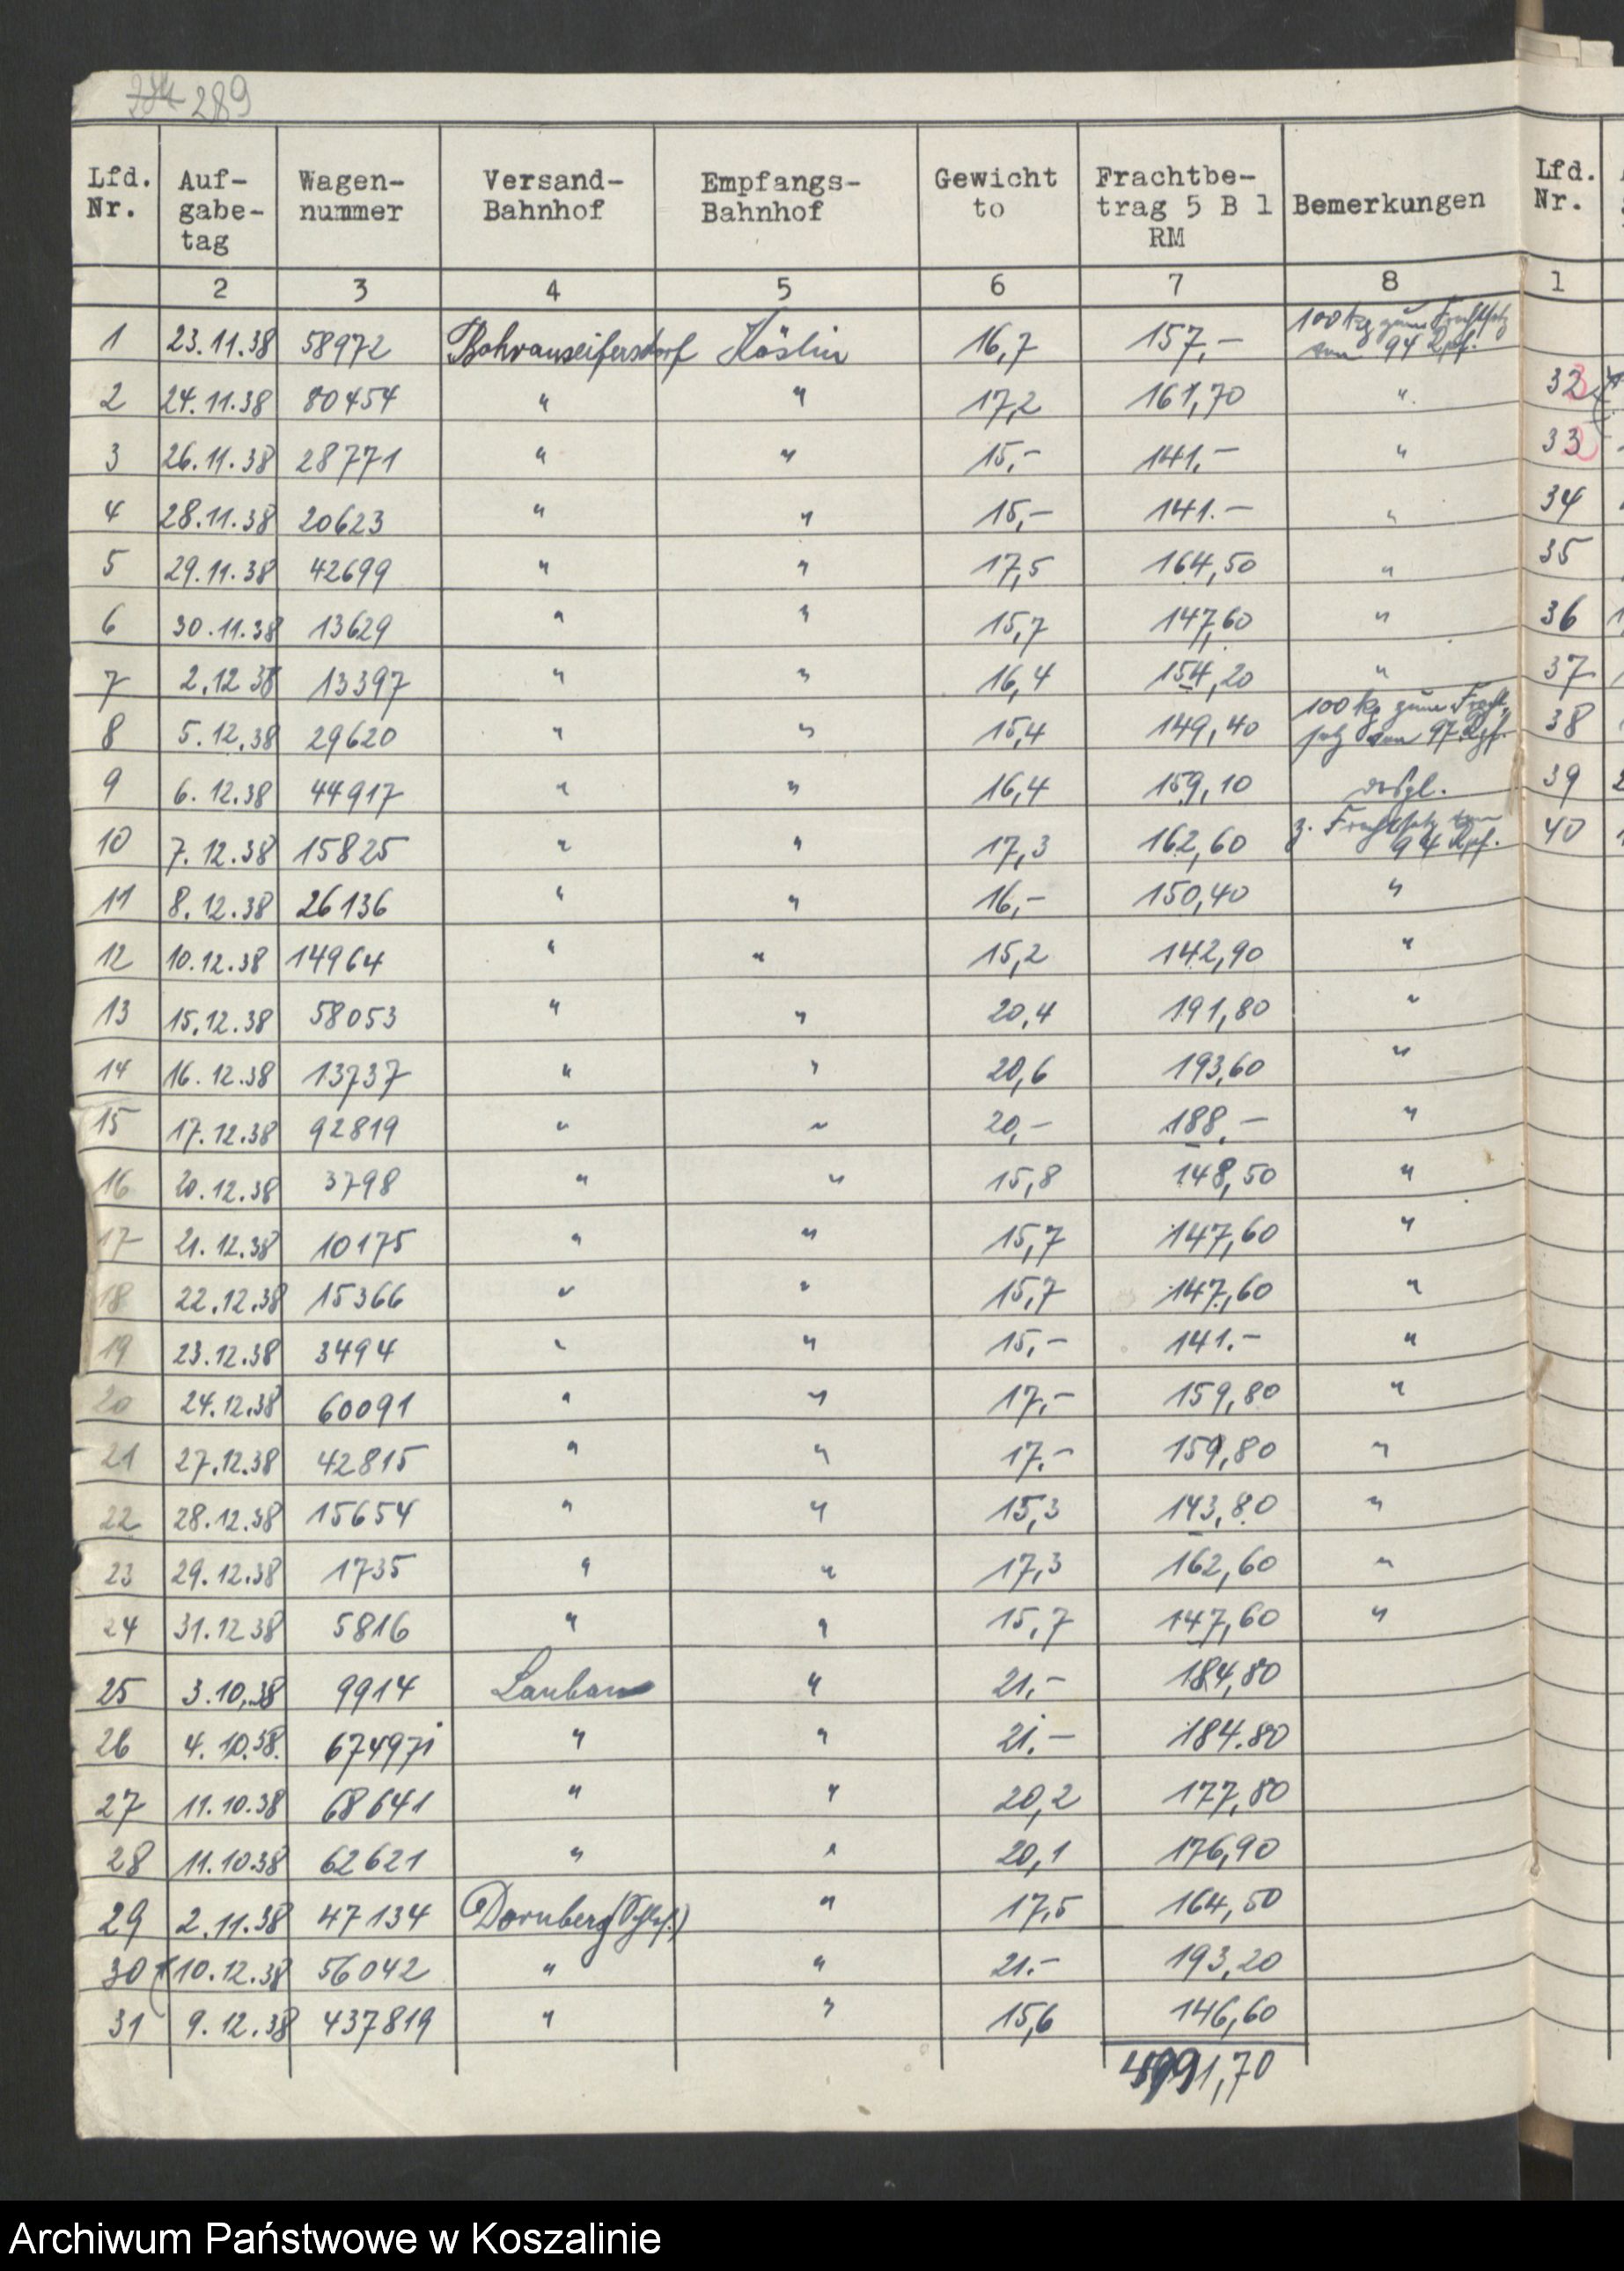 274 289
Lfd. Nr. Auf- gabe- tag Wagen- nummer Versand- Bahnhof Empfangs- Bahnhof Gewicht to Frachtbe- trag 5 B 1 RM Bemerkungen Lfd. Nr.
2 3 4 5 6 7 8 1
1 23.11.38 58972 Bohrauseifersdorf Köslin 16,7 157,- 100 kg zum Frachtsatz von 94 Rpf.
2 24.11.38 80454 " " 17,2 161,70 " 32
3 26.11.38 28771 " " 15,- 141.- " 33
4 28.11.38 20623 " " 15,- 141.- " 34
5 29.11.38 42699 " " 17,5 164,50 " 35
6 30.11.38 13629 " " 15,7 147,60 " 36
7 2.12 38 13397 " " 16,4 154,20 " 37
8 5.12.38 29620 " " 15,4 149,40 100 kg zum Fracht- satz von 97 Rpf. 38
9 6.12.38 44917 " " 16,4 159,10 desgl. 39
10 7.12.38 15825 " " 17,3 162,60 z. Frachtsatz von 94 Rpf. 40
11 8.12.38 26136 " " 16,- 150,40 "
12 10.12.38 14964 " " 15,2 142,90 "
13 15.12.38 58053 " " 20,4 191,80 "
14 16.12.38 13737 " " 20,6 193,60 "
15 17.12.38 92819 " " 20,- 188.- "
16 20.12.38 3798 " " 15,8 148,50 "
17 21.12.38 10175 " " 15,7 147,60 "
18 22.12.38 15366 " " 15,7 147,60 "
19 23.12.38 3494 " " 15,- 141.- "
20 24.12.38 60091 " " 17,- 159,80 "
21 27.12.38 42815 " " 17.- 159,80 "
22 28.12.38 15654 " " 15,3 143,80 "
23 29.12.38 1735 " " 17,3 162,60 "
24 31.12 38 5816 " " 15,7 147,60 "
25 3.10.38 9914 Lauban " 21,- 184,80
26 4.10.38. 67497 " " 21.- 184.80
27 11.10.38 68641 " " 20,2 177,80
28 11.10.38 62621 " " 20,1 176,90
29 2.11.38 47134 Dornberg (Schles.) " 17,5 164,50
30 10.12.38 56042 " " 21.- 193,20
31 9.12.38 437819 " " 15,6 146,60
4991,70
Archiwum Państwowe w Koszalinie